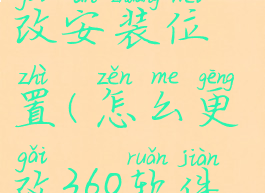 改安装位
zhì zěn me gēng
置(怎么更
gǎi ruǎn jiàn
改360软件